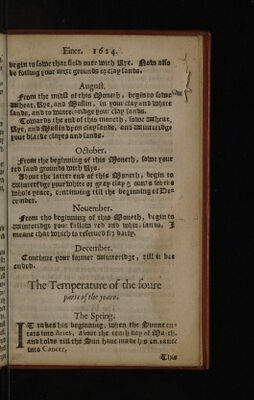 Einer. 1624.
begin to sowe that field over with Rye. Now also
be foiling your next grounds or clay sands.
August.
From the midst of this Moneth, begin to sowe
Wheat, Rye, and Maslin, in your clay and white
sands, and to winterridge your clay sands.
Towards the end of this moneth, sowe Wheat,
Rye, and Maslin upon clay sands, and Winterridge
your blacke clayes and sands.
October.
From the beginning of this Moneth, sowe your
red sand grounds with Rye.
About the latter end of this Moneth, begin to
Winterridge your white or gray clay
whole yeare, continuing till the beginning of De-
cember.
November.
From the beginning of this Moneth, begin to
winterridge your fallow red and white sands. I
meane that which is reserved for barly.
December.
Continue your former winterridge, till it bee
ended.
The Temperature of the foure
parts of the yeare.
The Spring.
IT takes his beginning, when the Sunne en-
ters into Aries, about the tenth day of March,
and holds till the Sun have made his entrance
into Cancer,
This